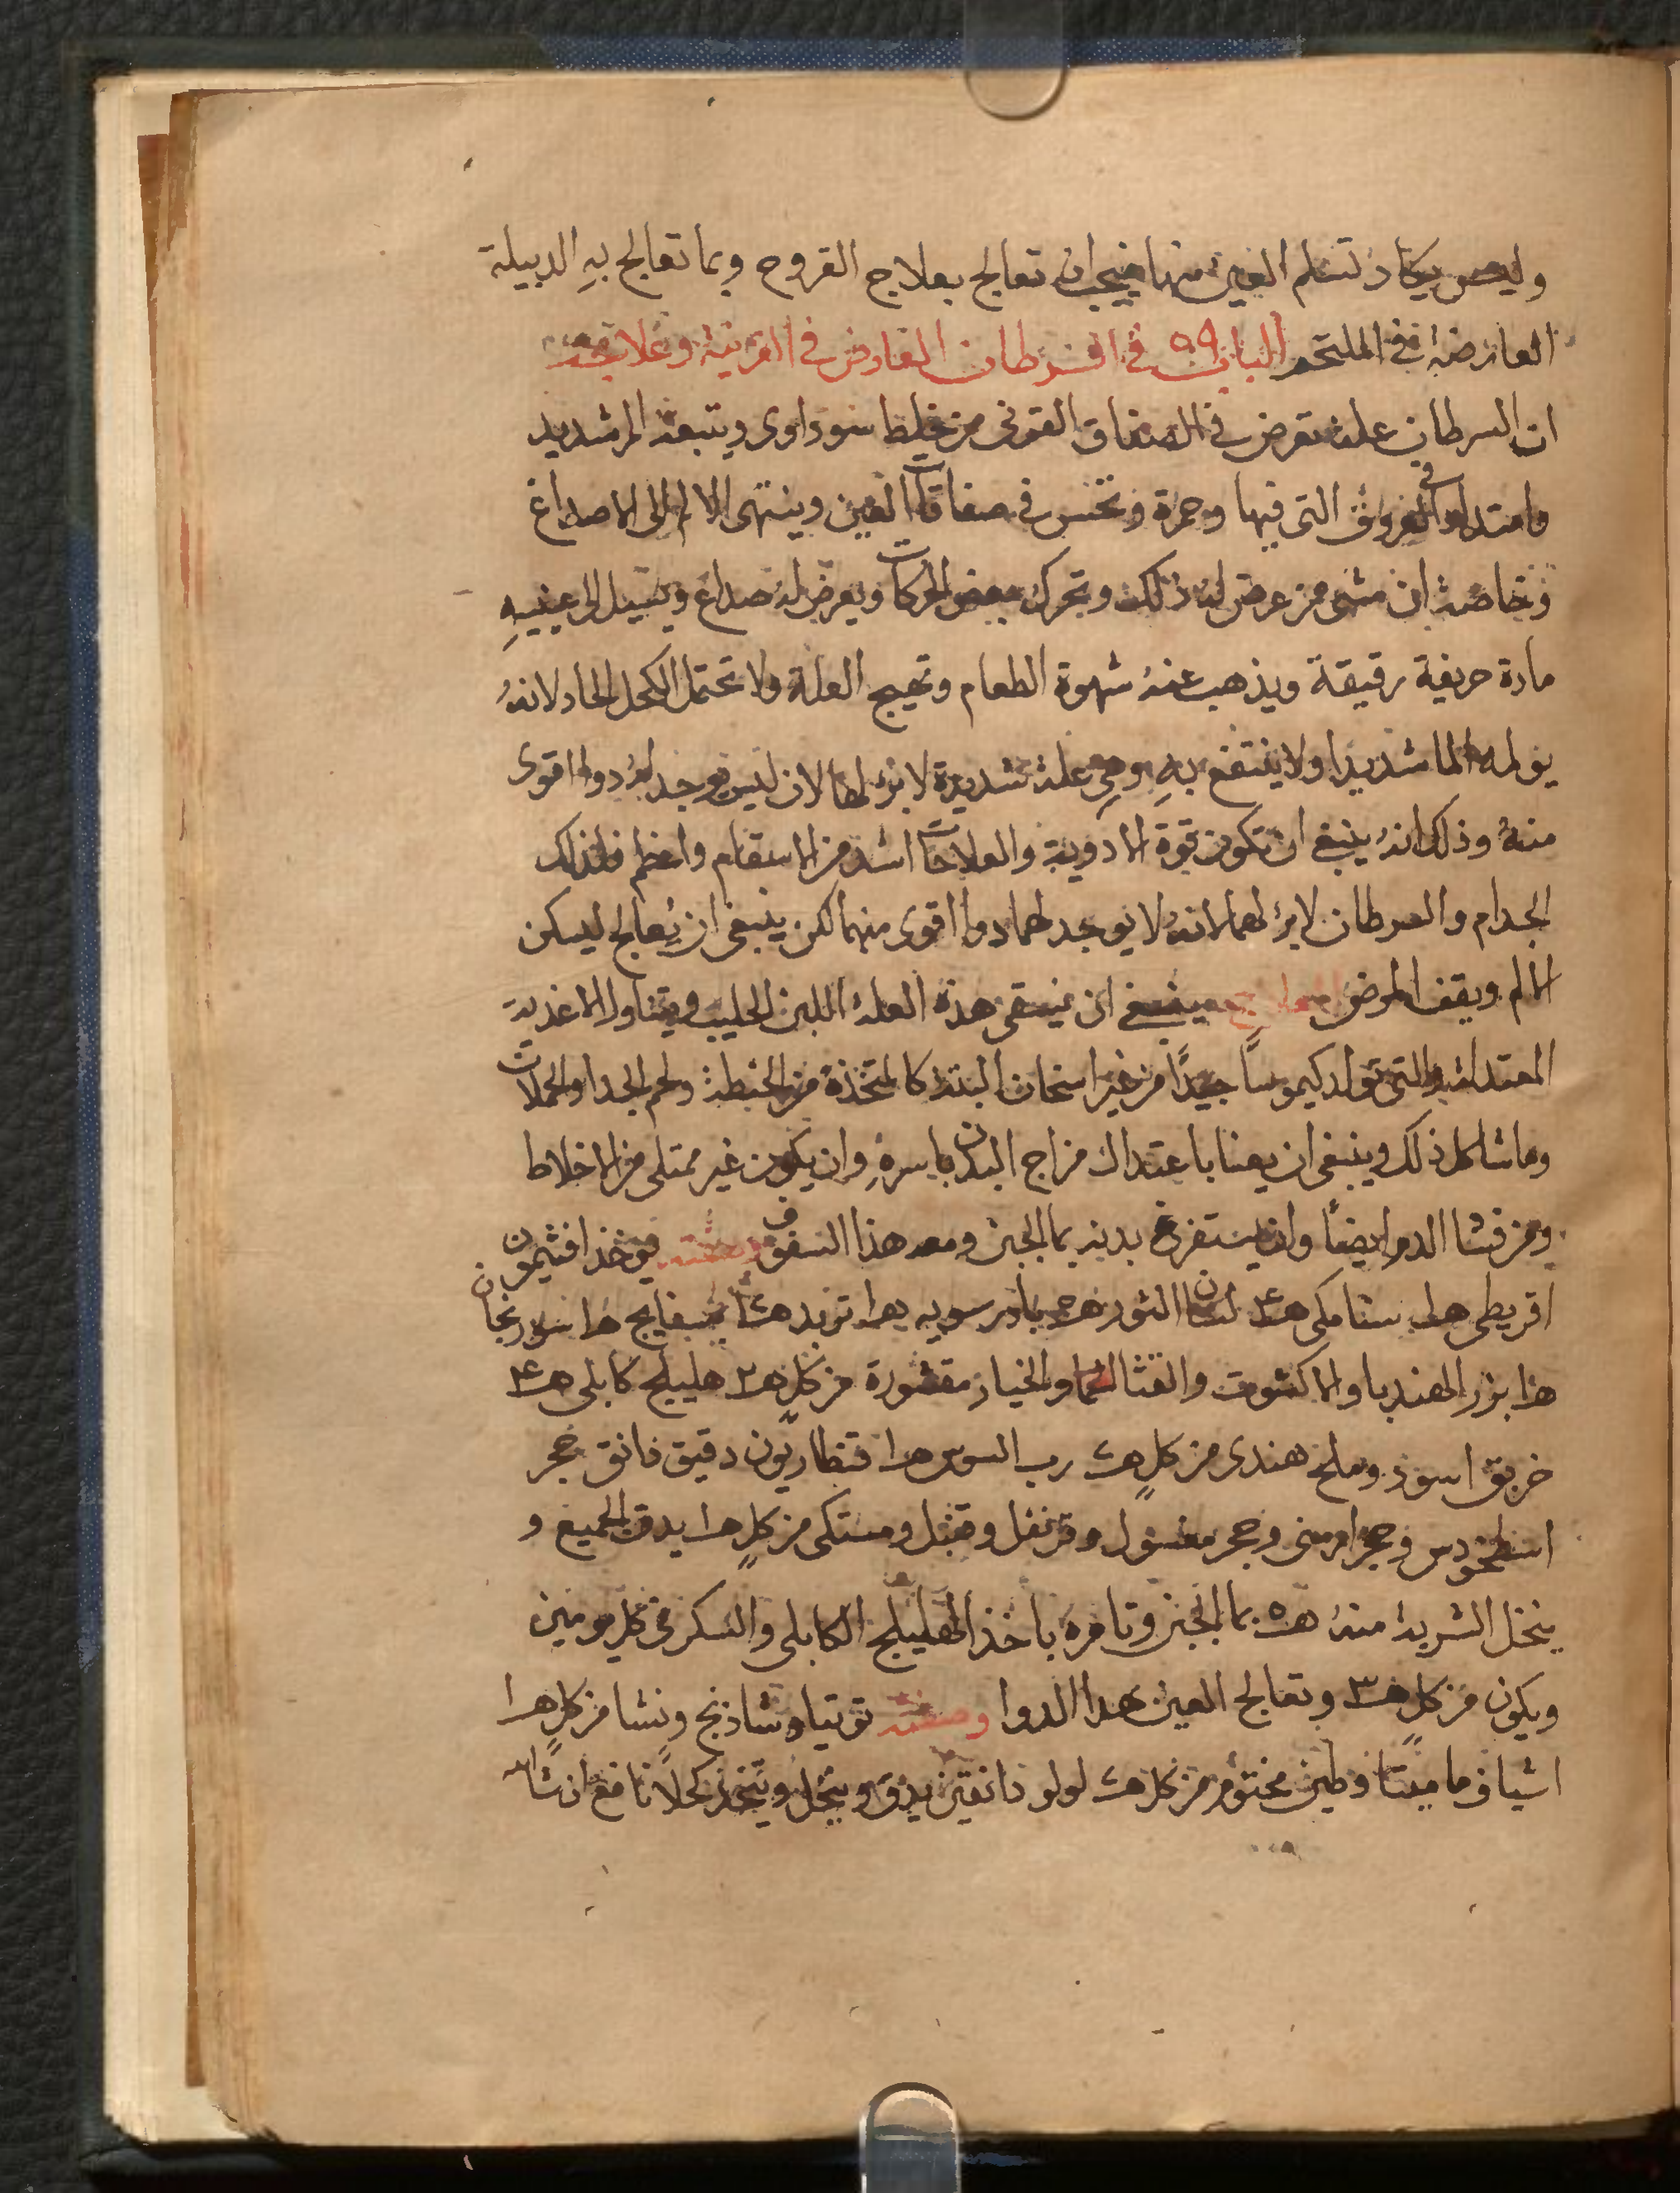 وليس يكاد تسلم العين منها فيجب ان تعالج بعلاج القروح وبما تعالج بهِ الدبيلة
العارضة في الملتحم الباب ٥٩ في السرطان العارض في القرنية وعلاجه
ان السرطان علة تعرض في الصفاق القرني من خلط سوداوي ويتبعه الم شديد
وامتداد في العروق التي فيها وحمرة ونخس في صفاقات العين وينتهي الالم الى الاصداغ
وخاصة ان مشى من عرض له ذلك وتحرك بعض الحركات ويعرض له صداع ويسيل الى عينيهِ
مادة حريفة رقيقة ويذهب عنهُ شهوة الطعام وتهيج العلة ولا تحتمل الكحل الحاد لانهُ
يولمه الما شديدا ولا ينتفع بهِ وهي علة شديدة لا برء لها لان ليس يوجد لهُ دوا اقوى
منهُ وذلك انهُ ينبغي ان تكون قوة الادوية والعلاجات اشد من الاسقام واعظم فلذلك
الجدام والسرطان لا برء لهما لانهُ لا يوجد لهما دوا اقوى منهما لكن ينبغي ان يُعالج ليسكن
الالم ويقف المرض ينبغي ان يسقى هذه العلة اللبن الحليب ويتناول الاغذية
المعتدلة والتي تولد كيموساً جيدًا من غير اسخان البتة كالمتخذة من الحنطة ولحم الجدا والحملان
وما شاكل ذلك وينبغي ان يعنا باعتدال مزاج البدن باسرهِ وان يكون غير ممتلي من الاخلاط
ومن قشا الدم ايضاً وان يستفرغ بدنه بما الجبن ومعه هذا السفوف وصفته يوخذ افثيمون
اقريطي سنا مكي لسان الثور تربد بسفايج سورنجان
بزر الهندبا والاكشوت والقثا والخيار مقشورة من كلٍ هليلج كابلي
خربق اسود وملح هندي من كلٍ رب السوس قنطاريون دقيق دانق حجر
اسطخودس وحجر ارمني وحجر مغسول وقرنفل ومستكى من كلٍ يدق الجميع و
ينخل الشربة منهُ بما الجبن وتامرهُ باخذ الهليلج الكابلي والسكر في كل يومين
ويكون من كلٍ وتعالج العين بهذا الدوا وصفته توتيا وشاذنج ونشا من كلٍ
اشياف ماميثا وطين مختوم من كل لولو دانقين يدق وينخل ويتخذ كحلاً نافع ان شا الله